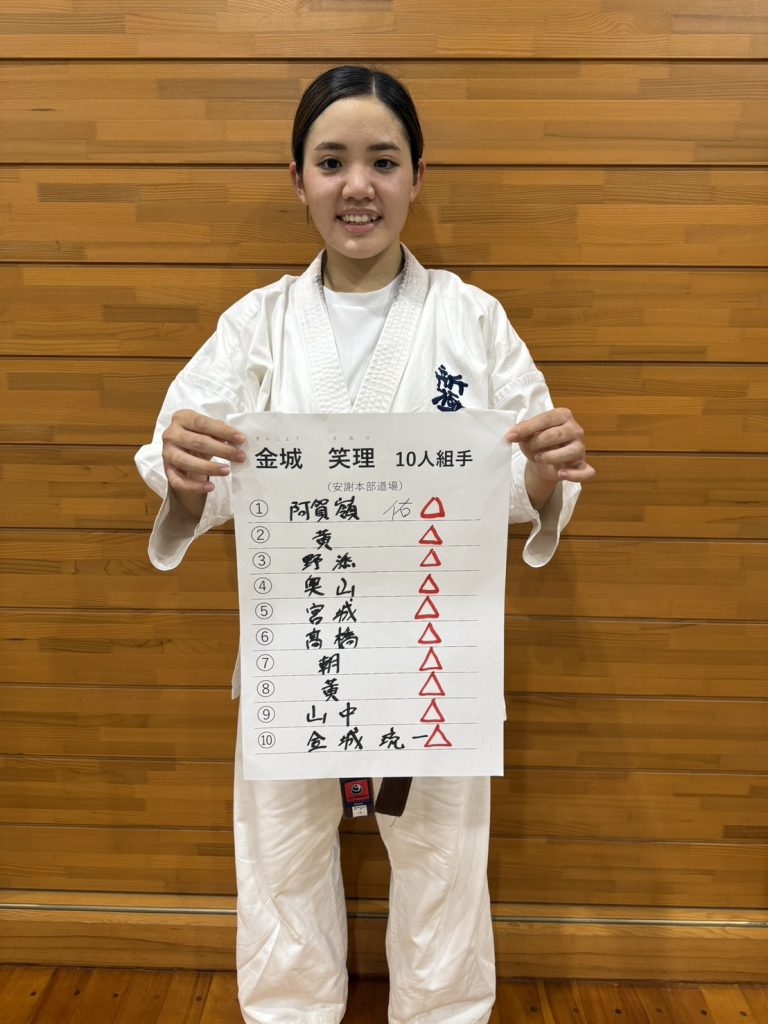 新極
きんじょう えみり
金城 笑理 10人組手
（安謝本部道場）
① 阿賀嶺 佑 △
② 黄 △
③ 野添 △
④ 奥山 △
⑤ 宮城 △
⑥ 髙橋 △
⑦ 朝 △
⑧ 黄 △
⑨ 山中 △
⑩ 金城 琉一 △